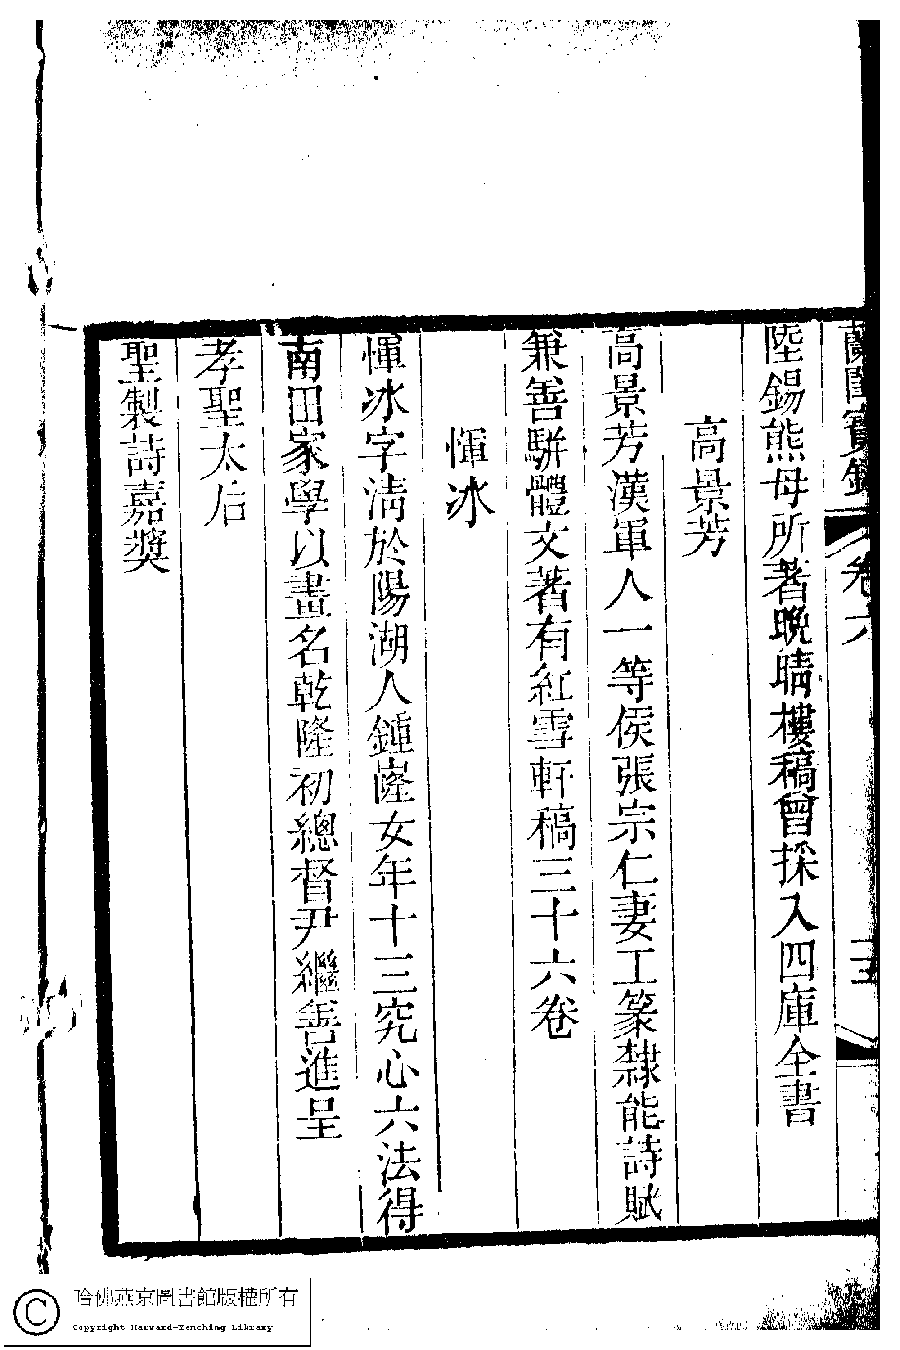 蘭閨寶錄
卷六
陸錫熊母所著晚晴樓稿曾採入四庫全書
高景芳
高景芳漢軍人一等侯張宗仁妻工篆隸能詩賦
兼善駢體文著有紅雪軒稿三十六卷
惲冰
惲冰字清於陽湖人鍾嶐女年十三究心六法得
南田家學以畫名乾隆初總督尹繼善進呈
孝聖太后
聖製詩嘉奬
哈佛燕京圖書館版權所有
Copyright Harvard-Yenching Library